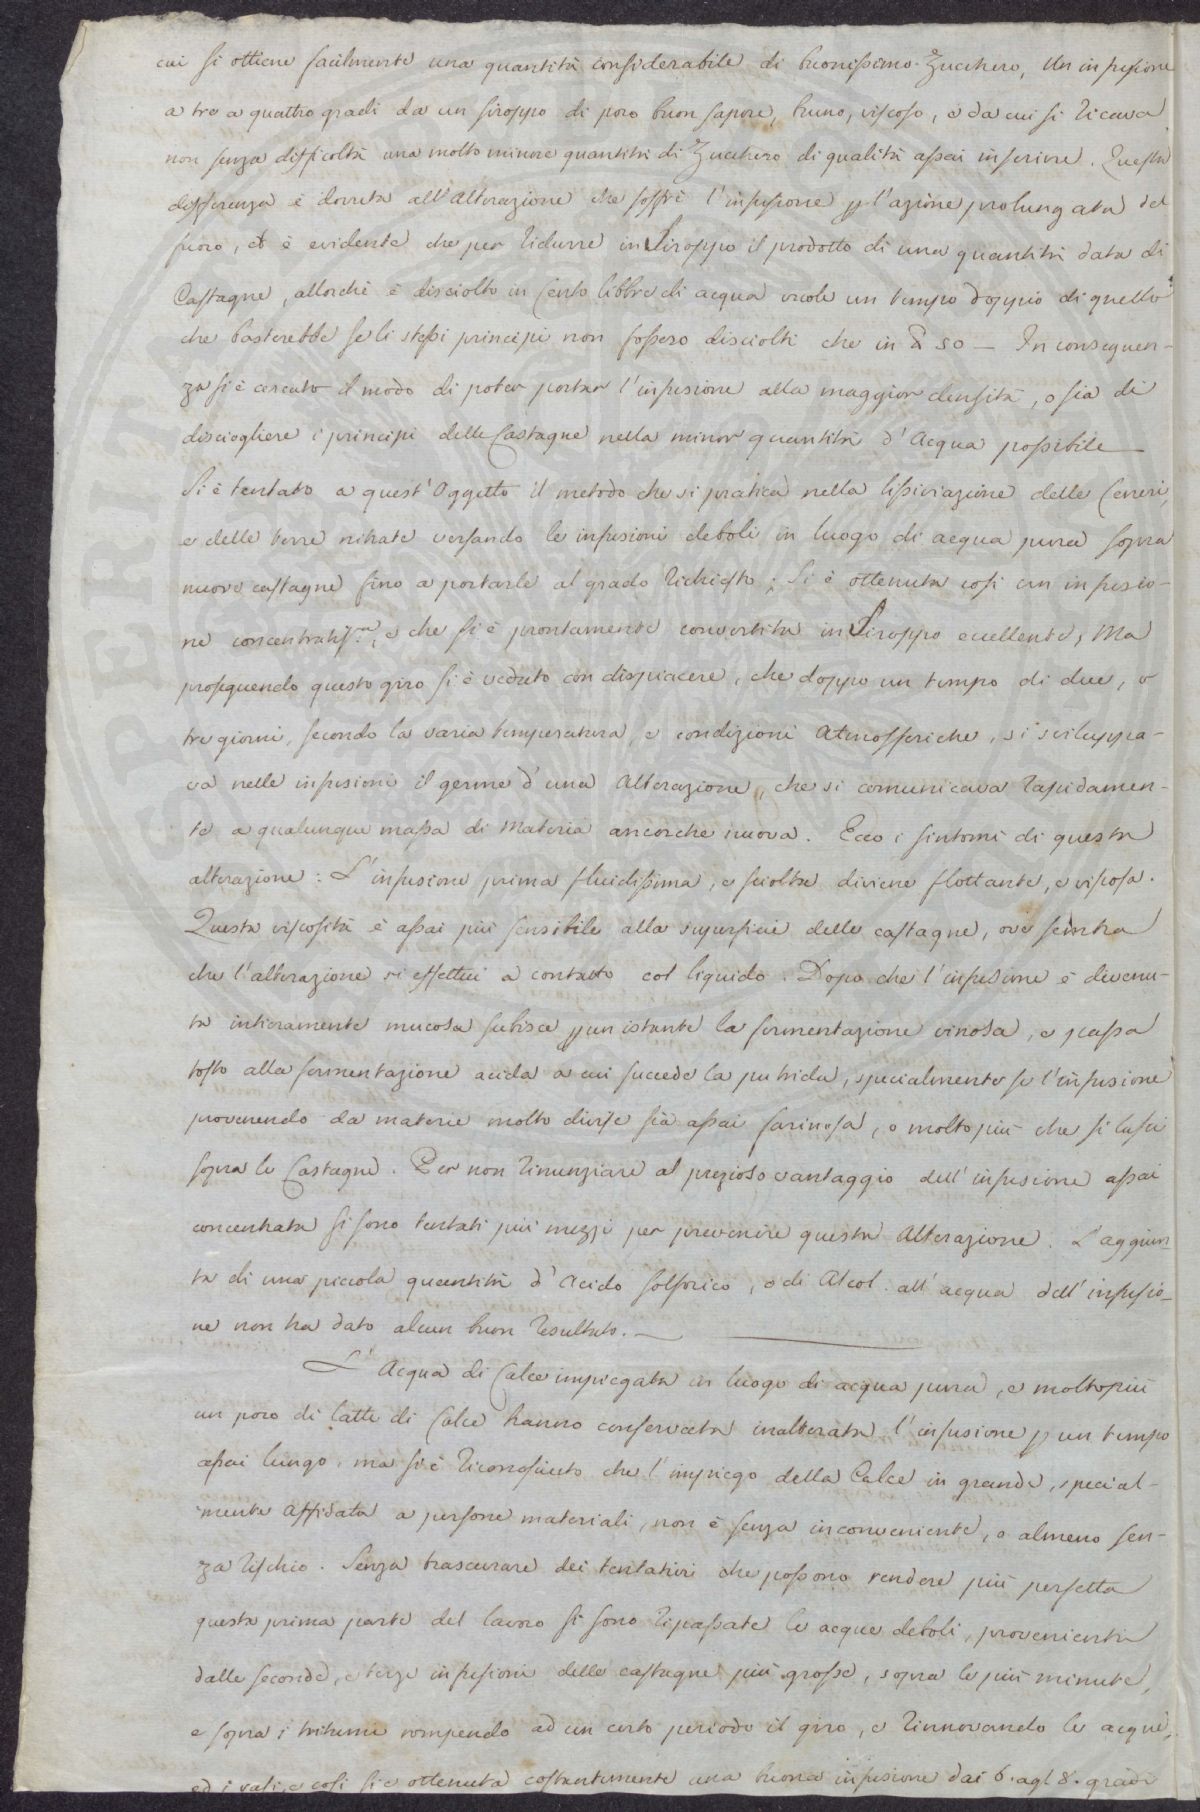 cui si ottiene facilmente una quantità considerabile di buonissimo Zucchero, Un infusione
a tre a quattro gradi da un siroppo di poco buon sapore, bruno, viscoso, e da cui si ricava
non senza difficoltà una molto minore quantità di Zucchero di qualità assai inferiore. Questa
differenza è dovuta all'Alterazione che soffre l'infusione p l'azione prolungata del
fuoco, ed è evidente che per ridurre in Siroppo il prodotto di una quantità data di
Castagne, allorchè è disciolto in Cento libbre di acqua vuole un tempo doppio di quello
che basterebbe se li stessi principi non fossero disciolti che in 50 — In conseguen-
za si è cercato il modo di poter portar l'infusione alla maggior densità, o sia di
disciogliere i principi delle Castagne nella minor quantità d'Acqua possibile —
Si è tentato a quest'Oggetto il metodo che si pratica nella lissiviazione delle Ceneri,
e delle terre nitrate versando le infusioni deboli in luogo di acqua pura sopra
nuove castagne fino a portarle al grado richiesto; Si è ottenuta così un infusio-
ne concentratiss.ma, e che si è prontamente convertita in Siroppo eccellente; Ma
proseguendo questo giro si è veduto con dispiacere, che doppo un tempo di due, o
tre giorni, secondo la varia temperatura, e condizioni Atmosferiche, si sviluppa-
va nelle infusioni il germe d'una Alterazione, che si comunicava rapidamen-
te a qualunque massa di Materia ancorche nuova. Ecco i sintomi di questa
alterazione: L'infusione prima fluidissima, e sciolta diviene flottante, e viscosa.
Questa viscosità è assai più sensibile alla superficie delle castagne, ove sembra
che l'alterazione si effettui a contatto col liquido. Dopo che l'infusione è divenu-
ta intieramente mucosa subisce p un istante la fermentazione vinosa, e passa
tosto alla fermentazione acida a cui succede la putrida, specialmente se l'infusione
provenendo da materie molto divise sia assai farinosa, o molto più che si lasci
sopra le Castagne. Per non rinunziare al prezioso vantaggio dell'infusione assai
concentrata si sono tentati più mezzi per prevenire questa Alterazione. L'aggiun-
ta di una piccola quantità d'Acido solforico, o di Alcol all'acqua dell'infusio-
ne non ha dato alcun buon resultato. —
L'Acqua di Calce impiegata in luogo di acqua pura, e molto più
un poco di latte di Calce hanno conservata inalterata l'infusione p un tempo
assai lungo, ma si è riconosciuto che l'impiego della Calce in grande, special-
mente affidata a persone materiali, non è senza inconveniente, o almeno sen-
za rischio. Senza trascurare dei tentativi che possono rendere più perfetta
questa prima parte del lavoro si sono ripassate le acque deboli, provenienti
dalle seconde, e terze infusioni delle castagne più grosse, sopra le più minute,
e sopra i tritumi rompendo ad un certo periodo il giro, e rinnovando le acque,
ed i vasi, e così si è ottenuta costantemente una buona infusione dai 6. agl 8. gradi